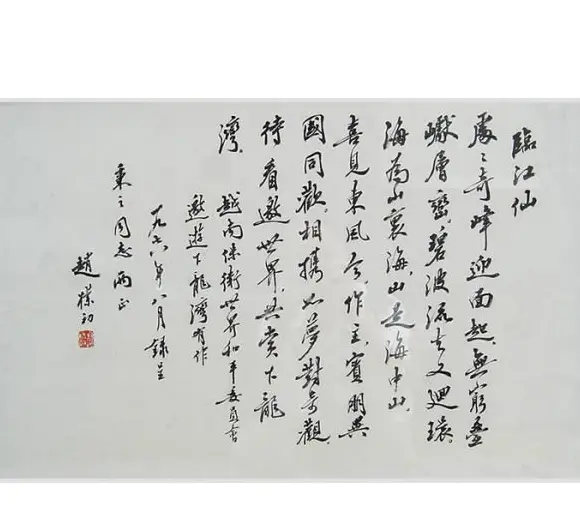 臨江仙
處〻奇峰迎面起,無窮疊
巘層巒。碧波流去又迴環。
海為山裏海,山是海中山。
喜見東風今作主,賓朋異
國同歡。相攜如夢對奇觀。
待看邀世界,共賞下龍
灣。
越南保衛世界和平委員會
邀遊下龍灣有作
一九七八年八月錄呈
秉之同志兩正
趙樸初